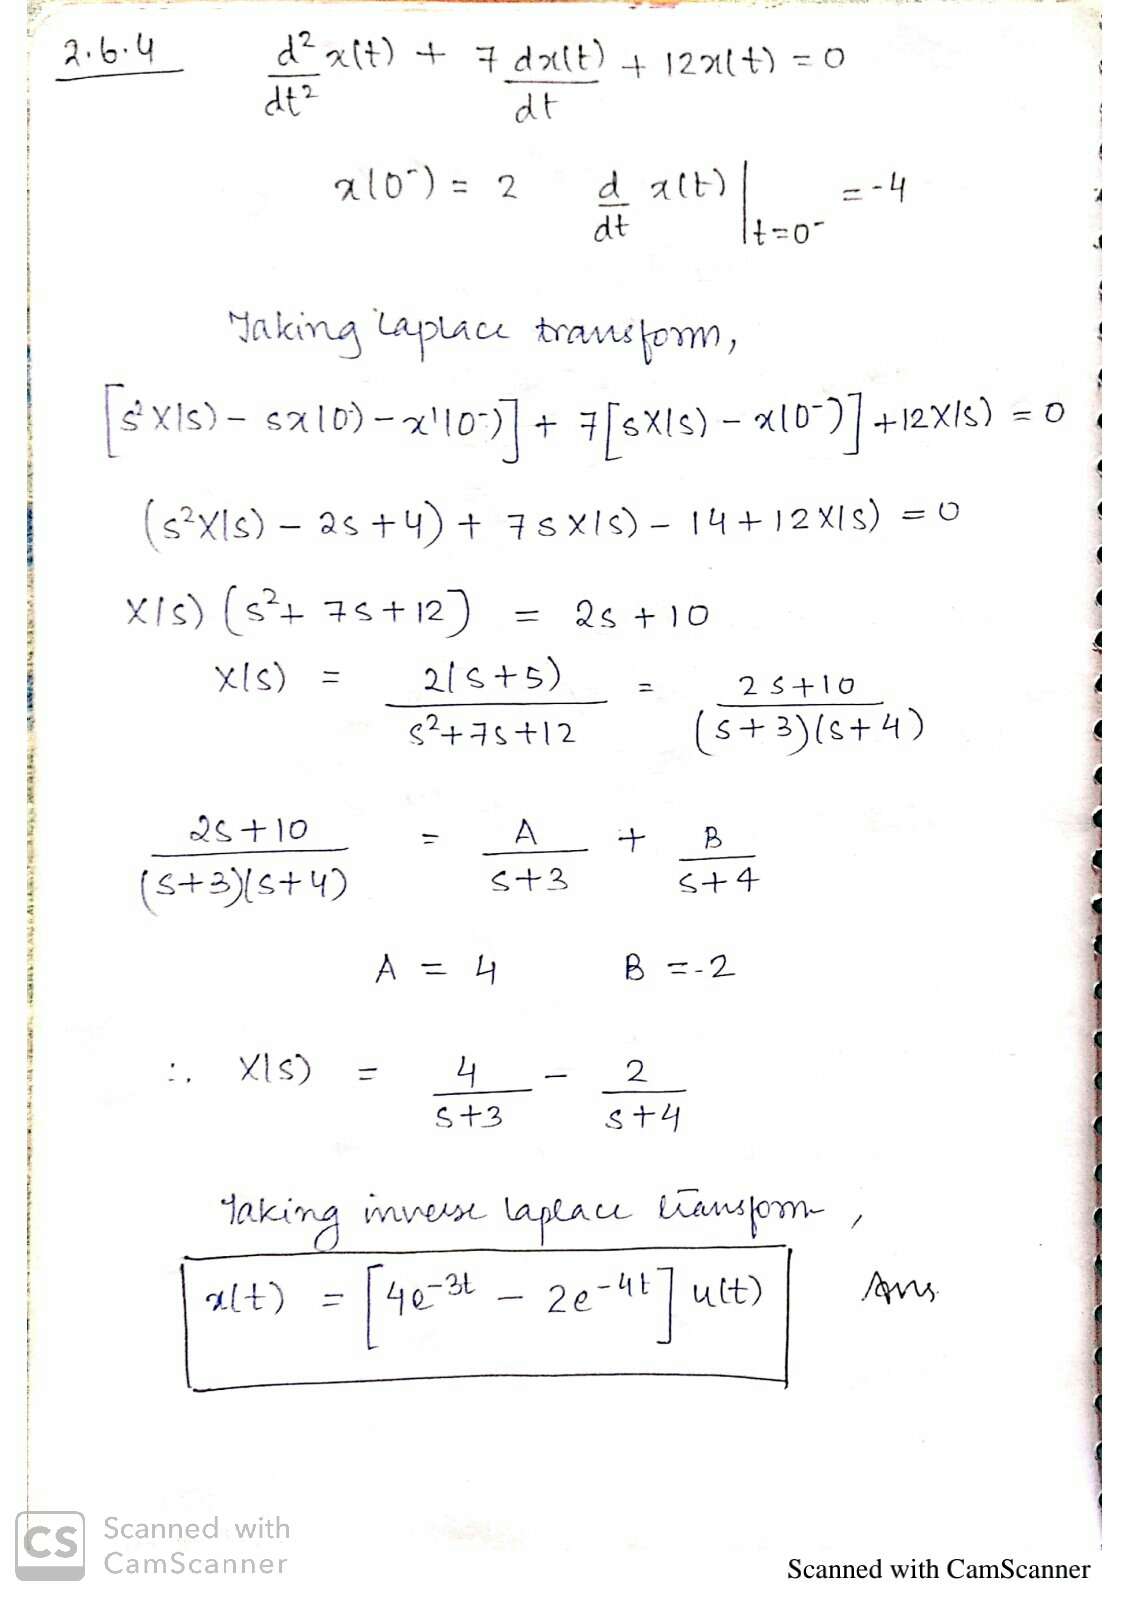 2.6.4 d²x(t)/dt² + 7 dx(t)/dt + 12x(t) = 0
x(0⁻) = 2 d/dt x(t)|t=0⁻ = -4
Taking Laplace transform,
[s²X(s) - sx(0⁻) - x'(0⁻)] + 7[sX(s) - x(0⁻)] + 12X(s) = 0
(s²X(s) - 2s + 4) + 7sX(s) - 14 + 12X(s) = 0
X(s) (s² + 7s + 12) = 2s + 10
X(s) = 2(s+5)/(s²+7s+12) = (2s+10)/((s+3)(s+4))
(2s+10)/((s+3)(s+4)) = A/(s+3) + B/(s+4)
A = 4 B = -2
∴ X(s) = 4/(s+3) - 2/(s+4)
Taking inverse laplace transform,
x(t) = [4e^-3t - 2e^-4t] u(t) Ans.
CS Scanned with
CamScanner
Scanned with CamScanner